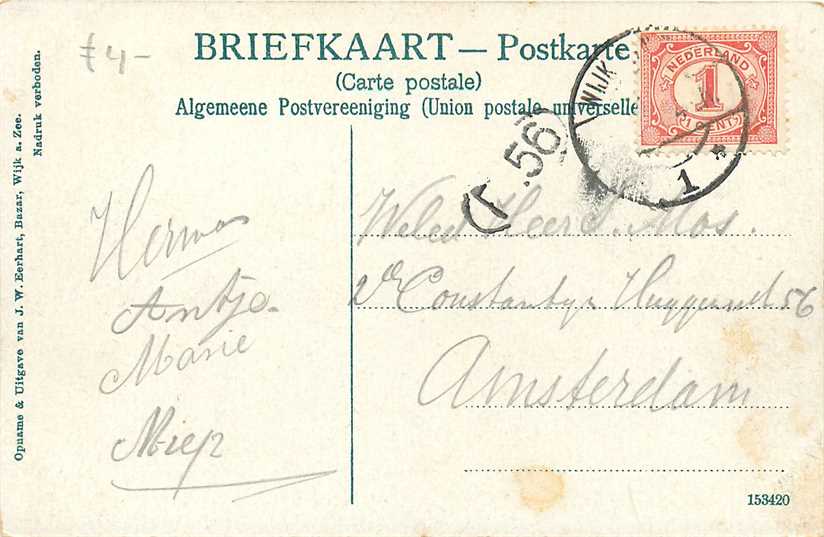 £4-
BRIEFKAART — Postkarte
(Carte postale)
Algemeene Postvereeniging (Union postale universelle
NEDERLAND
1
CENT
WIJK
1
.56
Opname & Uitgave van J. W. Eerhart, Bazar, Wijk a. Zee.
Nadruk verboden.
Herman
Antje
Marie
Miep
Heer S. Mos.
2de Constantijn Huygensst 56
Amsterdam
153420